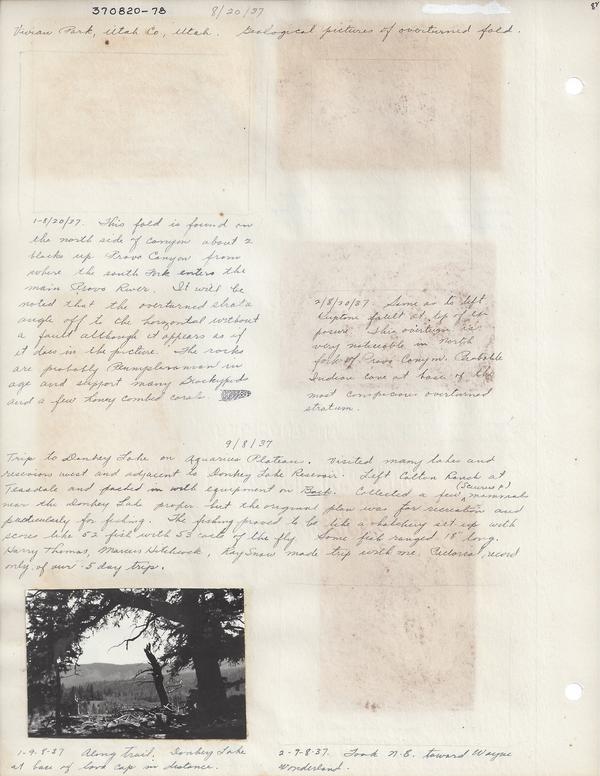 370820-78 8/20/37
87
Vivian Park, Utah Co, Utah. Geological pictures of overturned fold.
1-8/20/37. This fold is found on
the north side of canyon about 2
blocks up Provo Canyon from
where the south Fork enters the
main Provo River. It will be
noted that the overturned strata
angle off to the horizontal without
a fault although it appears as if
it does in the picture. The rocks
are probably Pennsylvanian in
age and support many
and a few honey combed coral
2/8/20/37. Same as to left
fault at tip of ex-
posure. This overturn is
very noticeable in north
fork of Provo Canyon. Probable
Indian cave at base of the
most conspicuous overturned
stratum.
9/8/37
Trip to Donkey Lake on Aquarius Plateau. Visited many lakes and
resevoirs west and adjacent to Donkey Lake Reservoir. Left Colton Ranch at
Teasdale and packed in with equipment on Collected a few mammals
near the Donkey Lake proper but the original plan was for recreation and
particularly for fishing. The fishing proved to be like a hatchery set up with
scores like 52 fish with 53 casts of the fly. Some fish ranged 18" long.
Harry Thomas, Marcus Hitchcock, Ray Snow made trip with me. Pictorial record
only of our 5 day trip.
1-9-8-37 Along trail. Donkey Lake
at base of lava cap in distance.
2-9-8-37. Look N.E. toward Wayne
Wonderland.